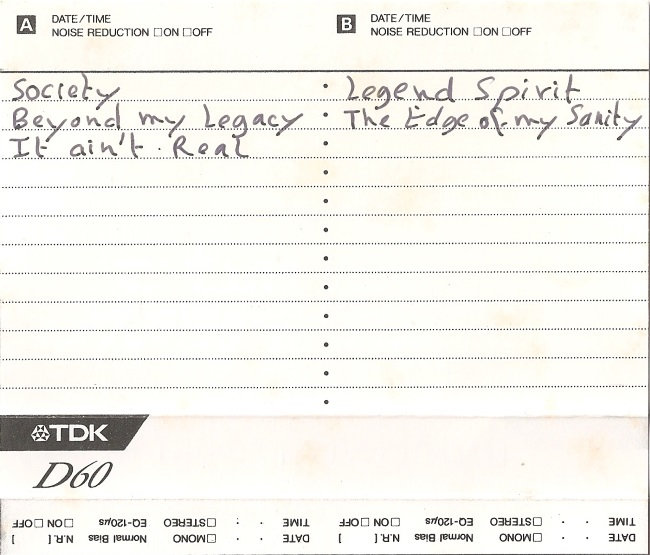 A DATE/TIME
NOISE REDUCTION □ON □OFF
B DATE/TIME
NOISE REDUCTION □ON □OFF
Society
Beyond my Legacy
It ain't Real
Legend Spirit
The Edge of my Sanity
TDK
D60
DATE TIME □MONO □STEREO Normal Bias EQ-120μs N.R.[ ] □ON □OFF
DATE TIME □MONO □STEREO Normal Bias EQ-120μs N.R.[ ] □ON □OFF